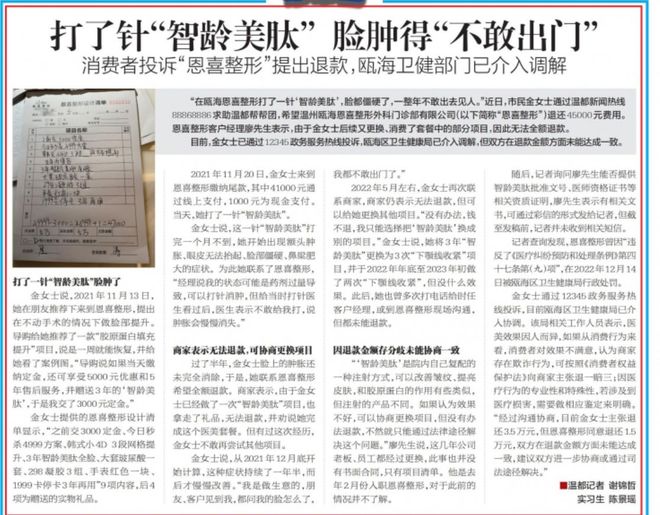 打了针“智龄美肽” 脸肿得“不敢出门”
消费者投诉“恩喜整形”提出退款，瓯海卫健部门已介入调解
“在瓯海恩喜整形打了一针‘智龄美肽’，脸都僵硬了，一整年不敢出去见人。”近日，市民金女士通过温都新闻热线
88868886求助温都帮帮团，希望温州瓯海恩喜整形外科门诊部有限公司（以下简称“恩喜整形”）退还45000元费用。
恩喜整形客户经理廖先生表示，由于金女士后续又更换、消费了套餐中的部分项目，因此无法全额退款。
目前，金女士已通过12345政务服务热线投诉，瓯海区卫生健康局已介入调解，但双方在退款金额方面未能达成一致。
打了一针“智龄美肽”脸肿了
金女士说，2021年11月13日，
她在朋友推荐下来到恩喜整形，提出
在不动手术的情况下做脸部提升。
导购给她推荐了一款“胶原蛋白填充
提升”项目，说是一周就能恢复，并给
她看了案例图。“导购说如果当天缴
纳定金，还可享受5000元优惠和5
年售后服务，并赠送3年的‘智龄美
肽’，于是我交了3000元定金。”
金女士提供的恩喜整形设计清
单显示，“之前交3000定金、今日秒
杀4999方案、韩式小4D 3段网格提
升、3年智龄美肽全脸、大套玻尿酸一
套、298凝胶3组、手表红色一块、
1999卡停卡3年再用”9项内容，后4
项为赠送的实物礼品。
2021年11月20日，金女士来到
恩喜整形缴纳尾款，其中41000元通
过线上支付，1000元为现金支付。当
天，她打了一针“智龄美肽”。
金女士说，这一针“智龄美肽”打
完一个月不到，她开始出现额头肿
胀、眼皮无法抬起、脸部僵硬、鼻梁肥
大的症状。为此她联系了恩喜整形，
“经理说我的状态可能是药剂过量导
致，可以打针消肿，但给当时打针医
生看过后，医生表示不敢给我打，说
肿胀会慢慢消失。”
商家表示无法退款，可协商更换项目
过了半年，金女士脸上的肿胀还
未完全消除，于是，她联系恩喜整形
希望全额退款。商家表示，由于金女
士已经做了一次“智龄美肽”项目，也
拿走了礼品，无法退款，并劝说她完
成这个医美套餐。但有过这次经历，
金女士不敢再尝试其他项目。
金女士说，从2021年12月底开
始计算，这种症状持续了一年半，而
后才慢慢改善。“我是做生意的，朋
友、客户见到我，都问我的脸怎么了，
我都不敢出门了。”
2022年5月左右，金女士再次联
系商家，商家仍表示无法退款，但可
以给她更换其他项目。“没有办法，钱
不退，我只能选择把‘智龄美肽’换成
别的项目。”金女士说，她将3年“智
龄美肽”更换为3次“下颚线收紧”项
目，并于2022年年底至2023年初做
了两次“下颚线收紧”，但没什么效
果。此后，她也曾多次打电话给时任
客户经理，或到恩喜整形现场沟通，
但都未能退款。
因退款金额存分歧未能协商一致
“‘智龄美肽’是院内自己复配
的一种注射方式，可以改善皱纹，提亮
皮肤，和胶原蛋白的作用有些类似，
但注射的产品不同。如果认为效果
不好，可以协商更换项目，但没有办
法退款，不然就只能通过法律途径解
决这个问题。”廖先生说，这几年公司
老板、员工都经过更换，此事也并没
有书面合同，只有项目清单。他是去
年2月份入职恩喜整形，对于此前的
情况并不了解。
随后，记者询问廖先生能否提供
智龄美肽批准文号、医师资格证书等
相关资质证明，廖先生表示有相关文
号，可通过彩信的形式发给记者，但截
至发稿前，记者并未收到相关短信。
记者查询发现，恩喜整形曾因“违
反了《医疗纠纷预防和处理条例》第四
十七条第（九）项”，在2022年12月14
日被瓯海区卫生健康局行政处罚。
金女士通过12345政务服务热
线投诉，目前瓯海区卫生健康局已介
入协调。该局相关工作人员表示，医
美效果因人而异，如果从消费行为来
看，消费者对效果不满意，认为商家
存在欺诈行为，可按照《消费者权益
保护法》向商家主张退一赔三；因医
疗行为的专业性和特殊性，若涉及到
医疗损害，需要做相应鉴定来明确。
“经过沟通协商，目前金女士主张退
还3.5万元，但恩喜整形同意退还1.5万
元，双方在退款金额方面未能达成一
致，建议双方进一步协商或通过司
法途径解决。”
■温都记者 谢锦哲
实习生 陈景瑶